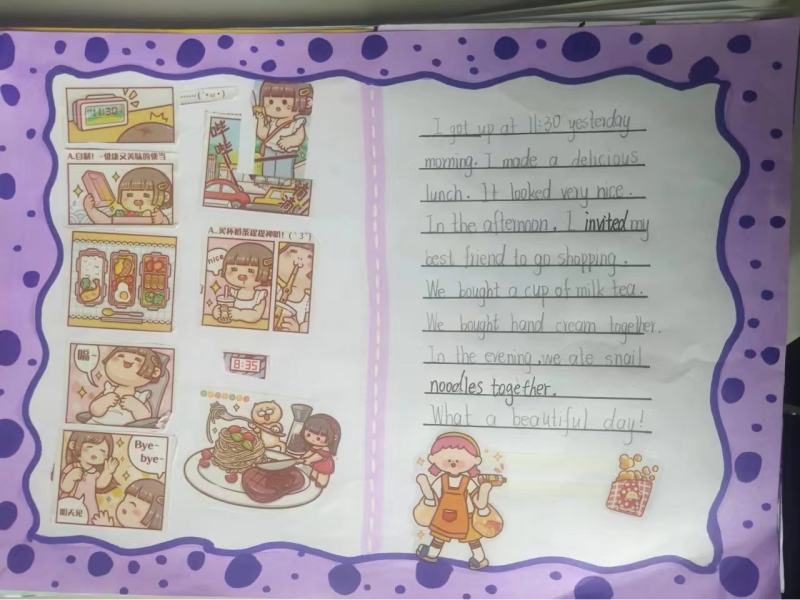 11:30
A.自制!~健康又美味的便当
嗝~
Bye~
bye~
明天见
A..买杯奶茶提提神啊!(`3´)
nice
8:35
I got up at 11:30 yesterday
morning. I made a delicious
lunch. It looked very nice.
In the afternoon, I invited my
best friend to go shopping.
We bought a cup of milk tea.
We bought hand cream together.
In the evening, we ate snail
noodles together.
What a beautiful day!